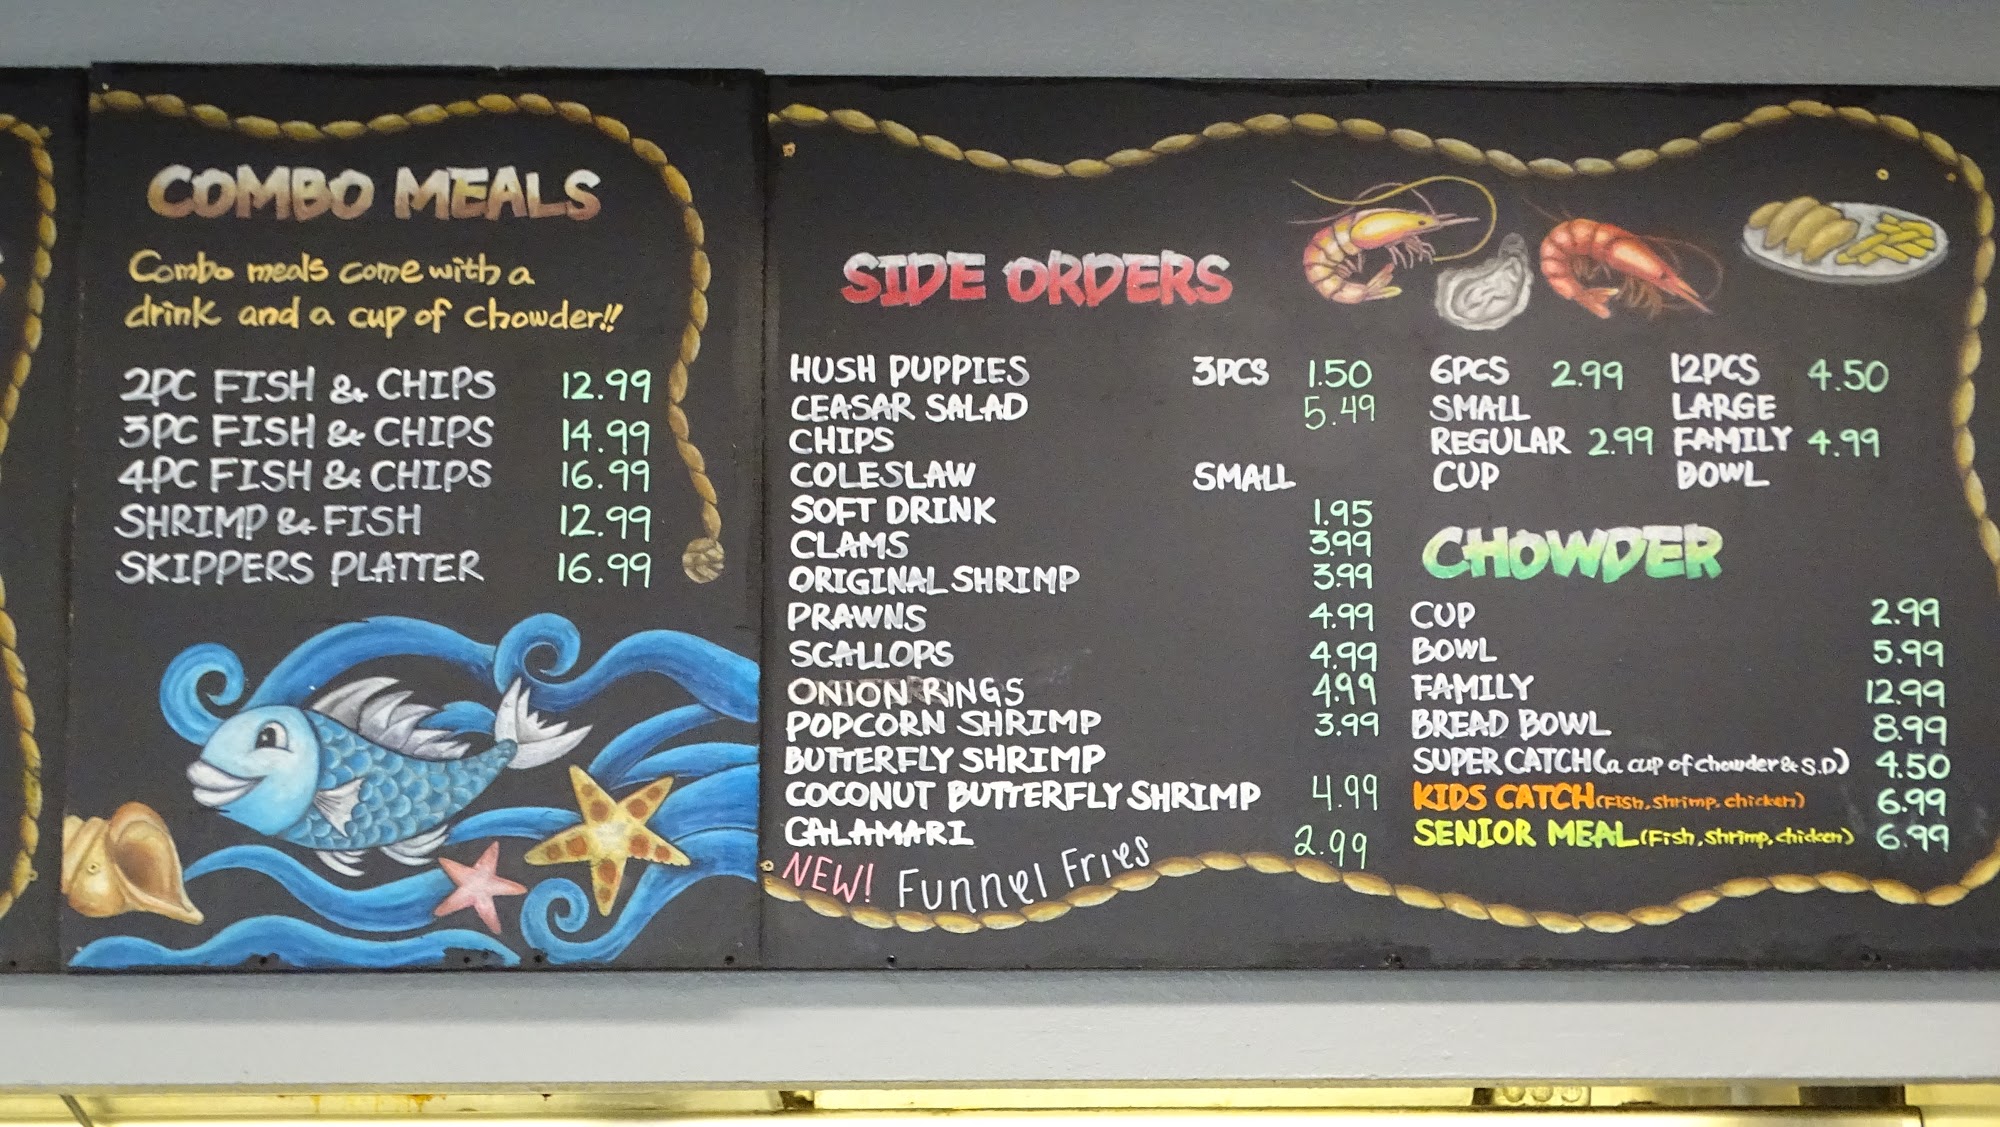 COMBO MEALS
Combo meals come with a
drink and a cup of chowder!!
2PC FISH & CHIPS 12.99
3PC FISH & CHIPS 14.99
4PC FISH & CHIPS 16.99
SHRIMP & FISH 12.99
SKIPPERS PLATTER 16.99
SIDE ORDERS
HUSH PUPPIES 3PCS 1.50 6PCS 2.99 12PCS 4.50
CEASAR SALAD 5.49 SMALL LARGE
CHIPS REGULAR 2.99 FAMILY 4.99
COLESLAW SMALL CUP BOWL
SOFT DRINK 1.95
CLAMS 3.99
ORIGINAL SHRIMP 3.99
PRAWNS 4.99
SCALLOPS 4.99
ONION RINGS 4.99
POPCORN SHRIMP 3.99
BUTTERFLY SHRIMP
COCONUT BUTTERFLY SHRIMP 4.99
CALAMARI
NEW! Funnel Fries 2.99
CHOWDER
CUP 2.99
BOWL 5.99
FAMILY 12.99
BREAD BOWL 8.99
SUPER CATCH (a cup of chowder & S.D) 4.50
KIDS CATCH (Fish, shrimp, chicken) 6.99
SENIOR MEAL (Fish, shrimp, chicken) 6.99